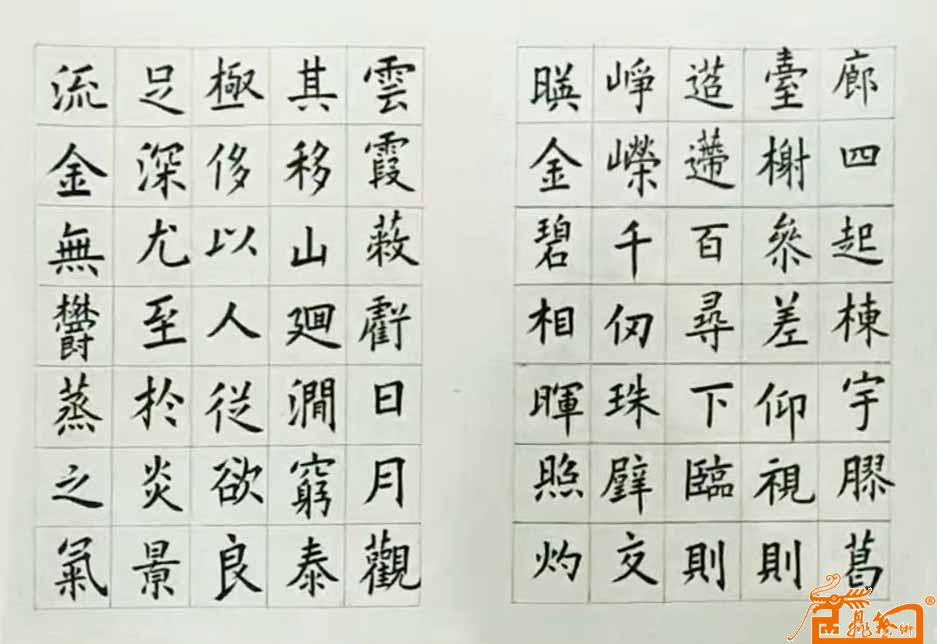 廊四起棟宇膠葛
臺榭參差仰視則
迢遰百尋下臨則
崢嶸千仞珠壁交
暎金碧相暉照灼
雲霞蔽虧日月觀
其移山廻澗窮泰
極侈以人從欲良
足深尤至於炎景
流金無欝蒸之氣